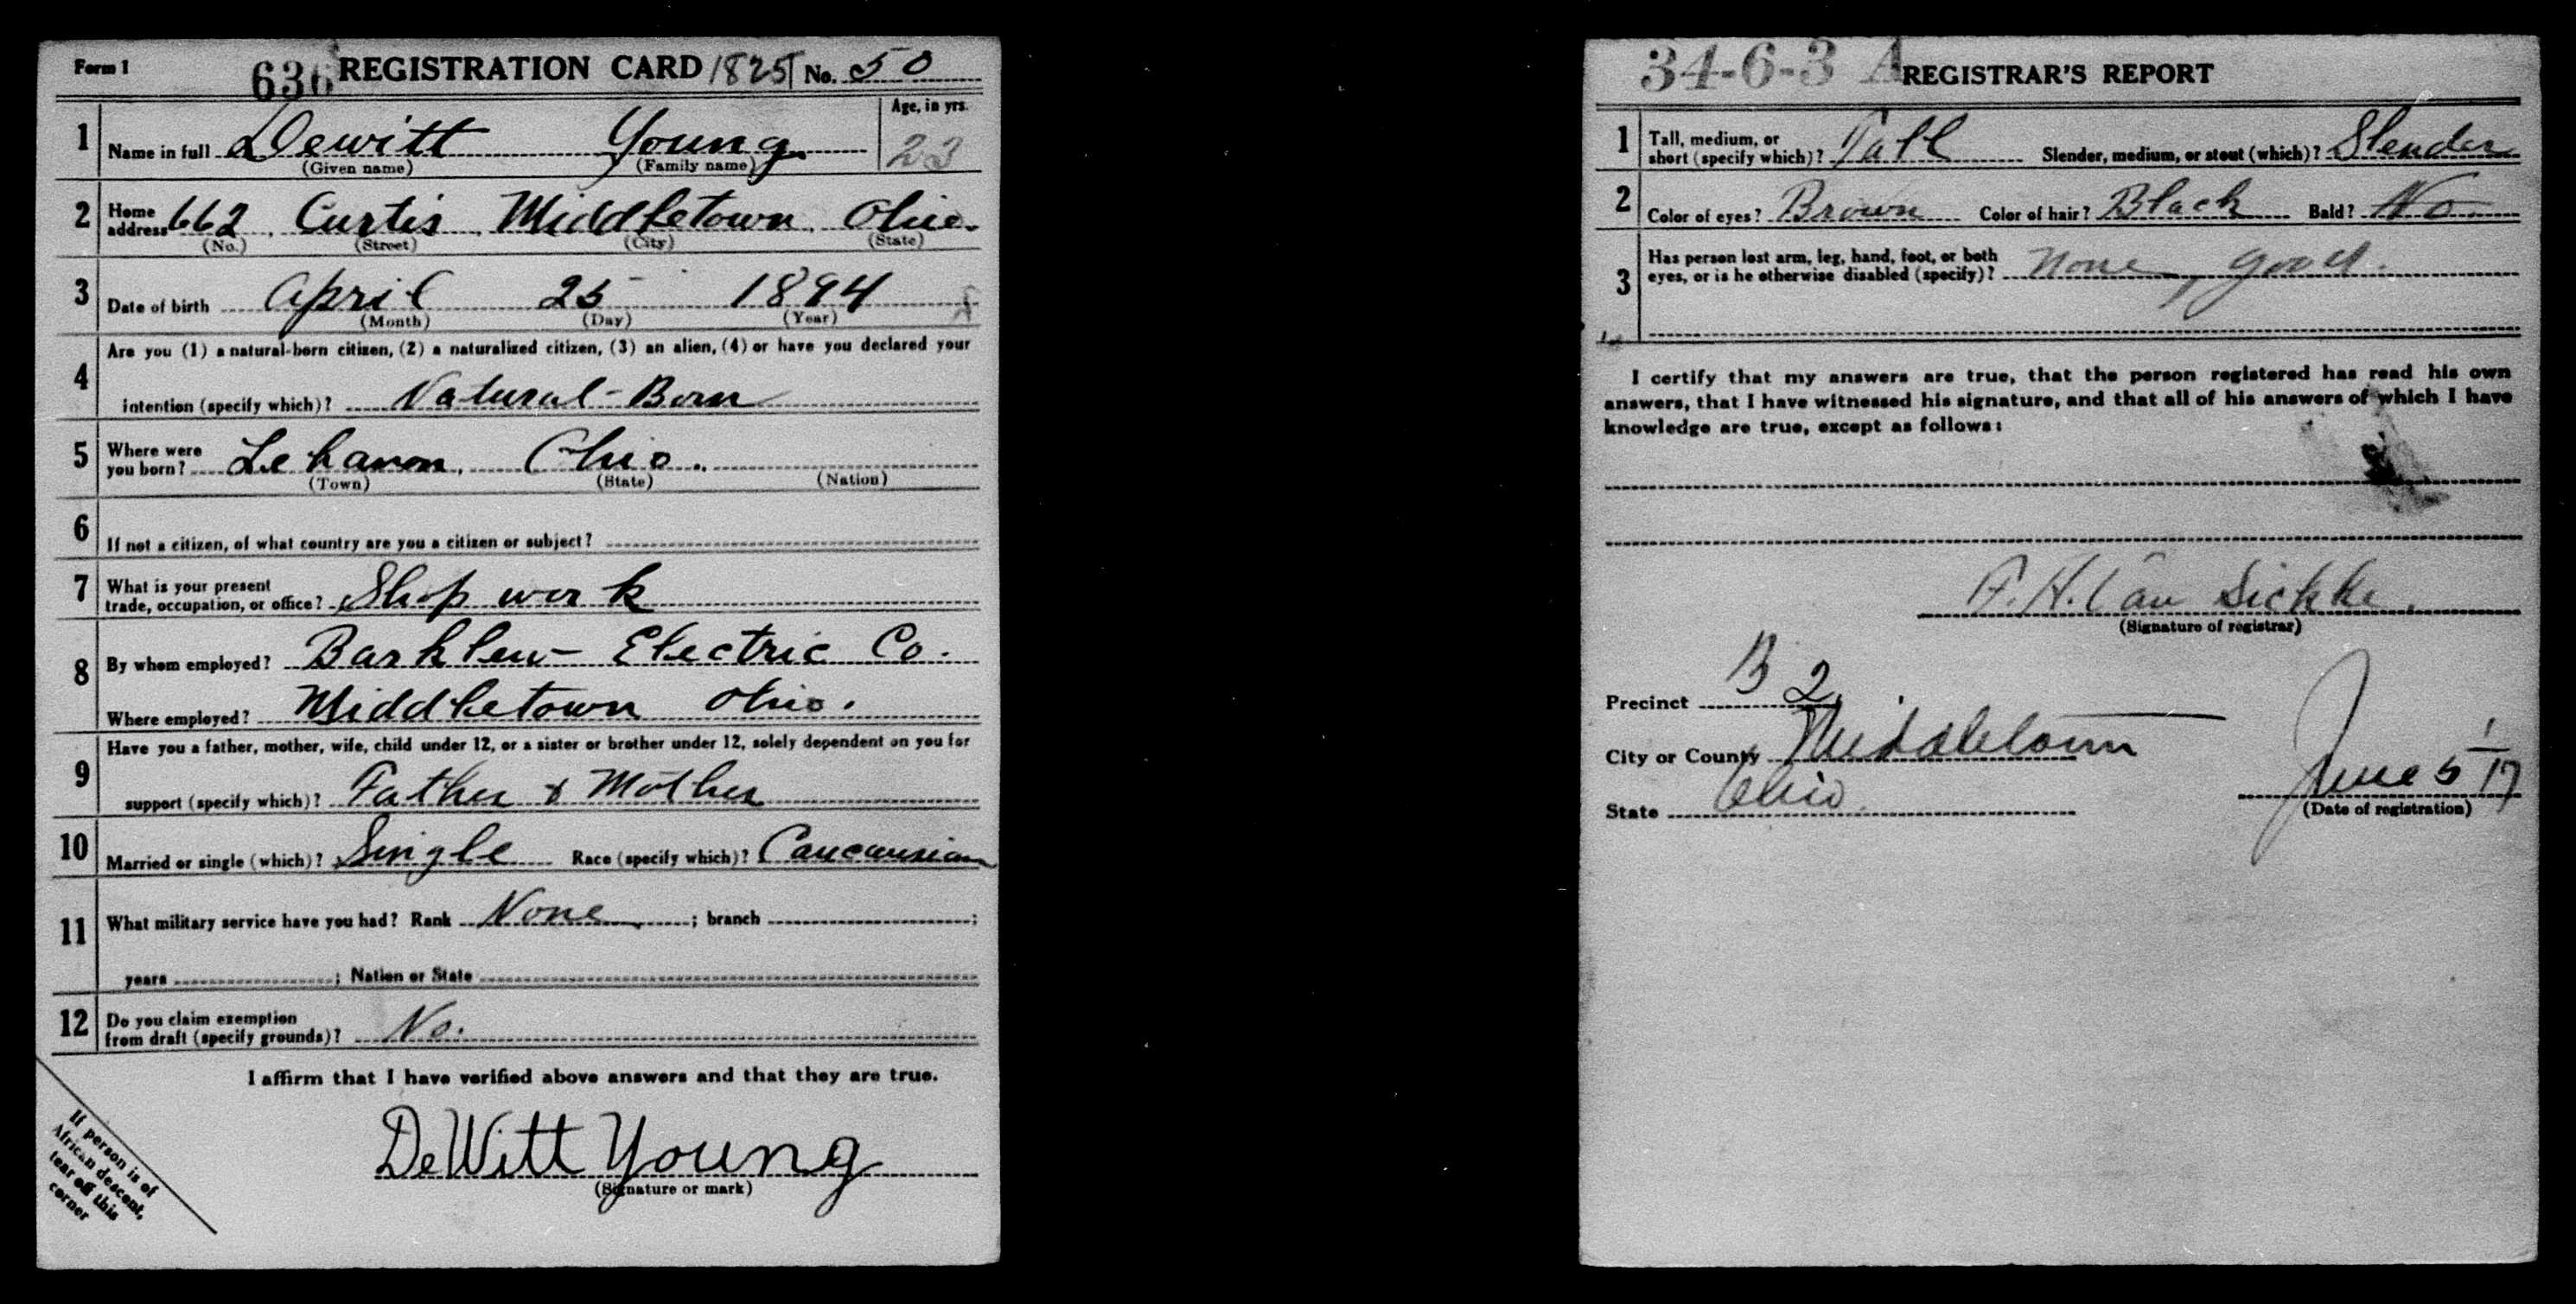 Form 1 636 REGISTRATION CARD 1825 No. 50
1 Name in full Dewitt Young Age, in yrs. 23
(Given name) (Family name)
2 Home address 662 Curtis Middletown, Ohio.
(No.) (Street) (City) (State)
3 Date of birth April 25 1894
(Month) (Day) (Year)
4 Are you (1) a natural-born citizen, (2) a naturalized citizen, (3) an alien, (4) or have you declared your
intention (specify which)? Natural-Born
5 Where were you born? Lebanon, Ohio.
(Town) (State) (Nation)
6 If not a citizen, of what country are you a citizen or subject?
7 What is your present trade, occupation, or office? Shop work
8 By whom employed? Barklew Electric Co.
Where employed? Middletown Ohio.
9 Have you a father, mother, wife, child under 12, or a sister or brother under 12, solely dependent on you for
support (specify which)? Father & Mother
10 Married or single (which)? Single Race (specify which)? Caucausian
11 What military service have you had? Rank None ; branch ;
years ; Nation or State
12 Do you claim exemption from draft (specify grounds)? No.
I affirm that I have verified above answers and that they are true.
DeWitt Young
(Signature or mark)
If person is of
African descent,
tear off this
corner
34-6-3 A REGISTRAR'S REPORT
1 Tall, medium, or short (specify which)? Tall Slender, medium, or stout (which)? Slender
2 Color of eyes? Brown Color of hair? Black Bald? No
3 Has person lost arm, leg, hand, foot, or both
eyes, or is he otherwise disabled (specify)? None, good.
I certify that my answers are true, that the person registered has read his own
answers, that I have witnessed his signature, and that all of his answers of which I have
knowledge are true, except as follows:
F. H. Van Sickle.
(Signature of registrar)
Precinct B 2
City or County Middletown
State Ohio.
June 5 / 17
(Date of registration)